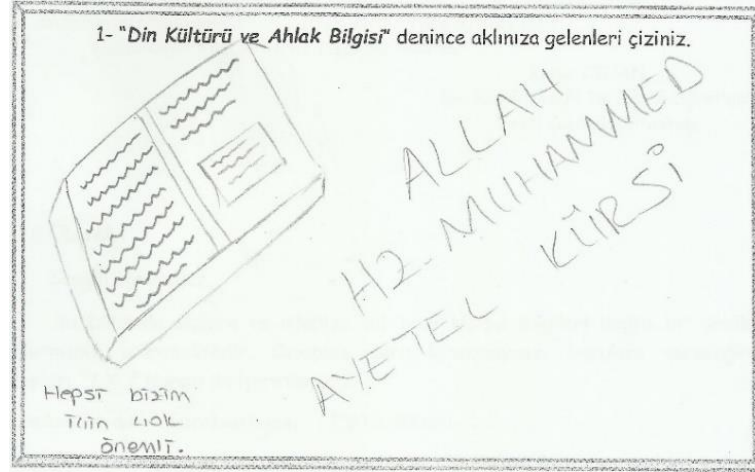 1- "Din Kültürü ve Ahlak Bilgisi" denince aklınıza gelenleri çiziniz.
ALLAH
HZ. MUHAMMED
AYETEL KÜRSİ
Hepsi bizim
için çok
önemli.